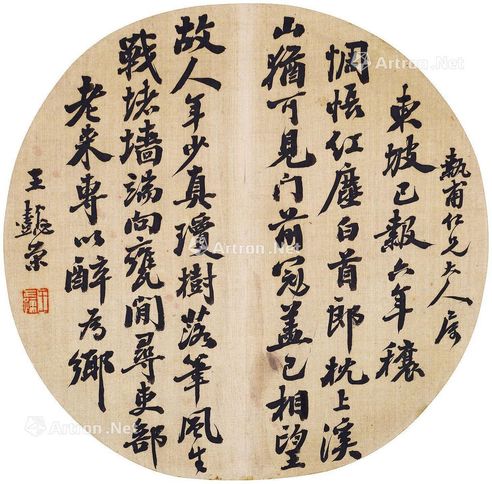 執甫仁兄大人属
東坡已報六年穰
惆悵红塵白首郎枕上溪
山猶可見门前冠盖已相望
故人年少真瓊樹落筆風生
戰堵墙端向甕間尋吏部
老来專以醉為鄉
王懿榮
Artron.Net
Artron.Net
Artron.Net
Artron.Net
Artron.Net